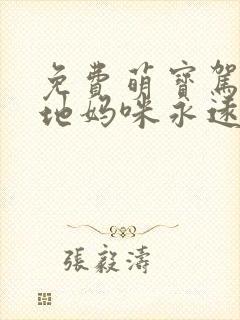 免費萌寶駕
地媽咪永遠
張毅濤